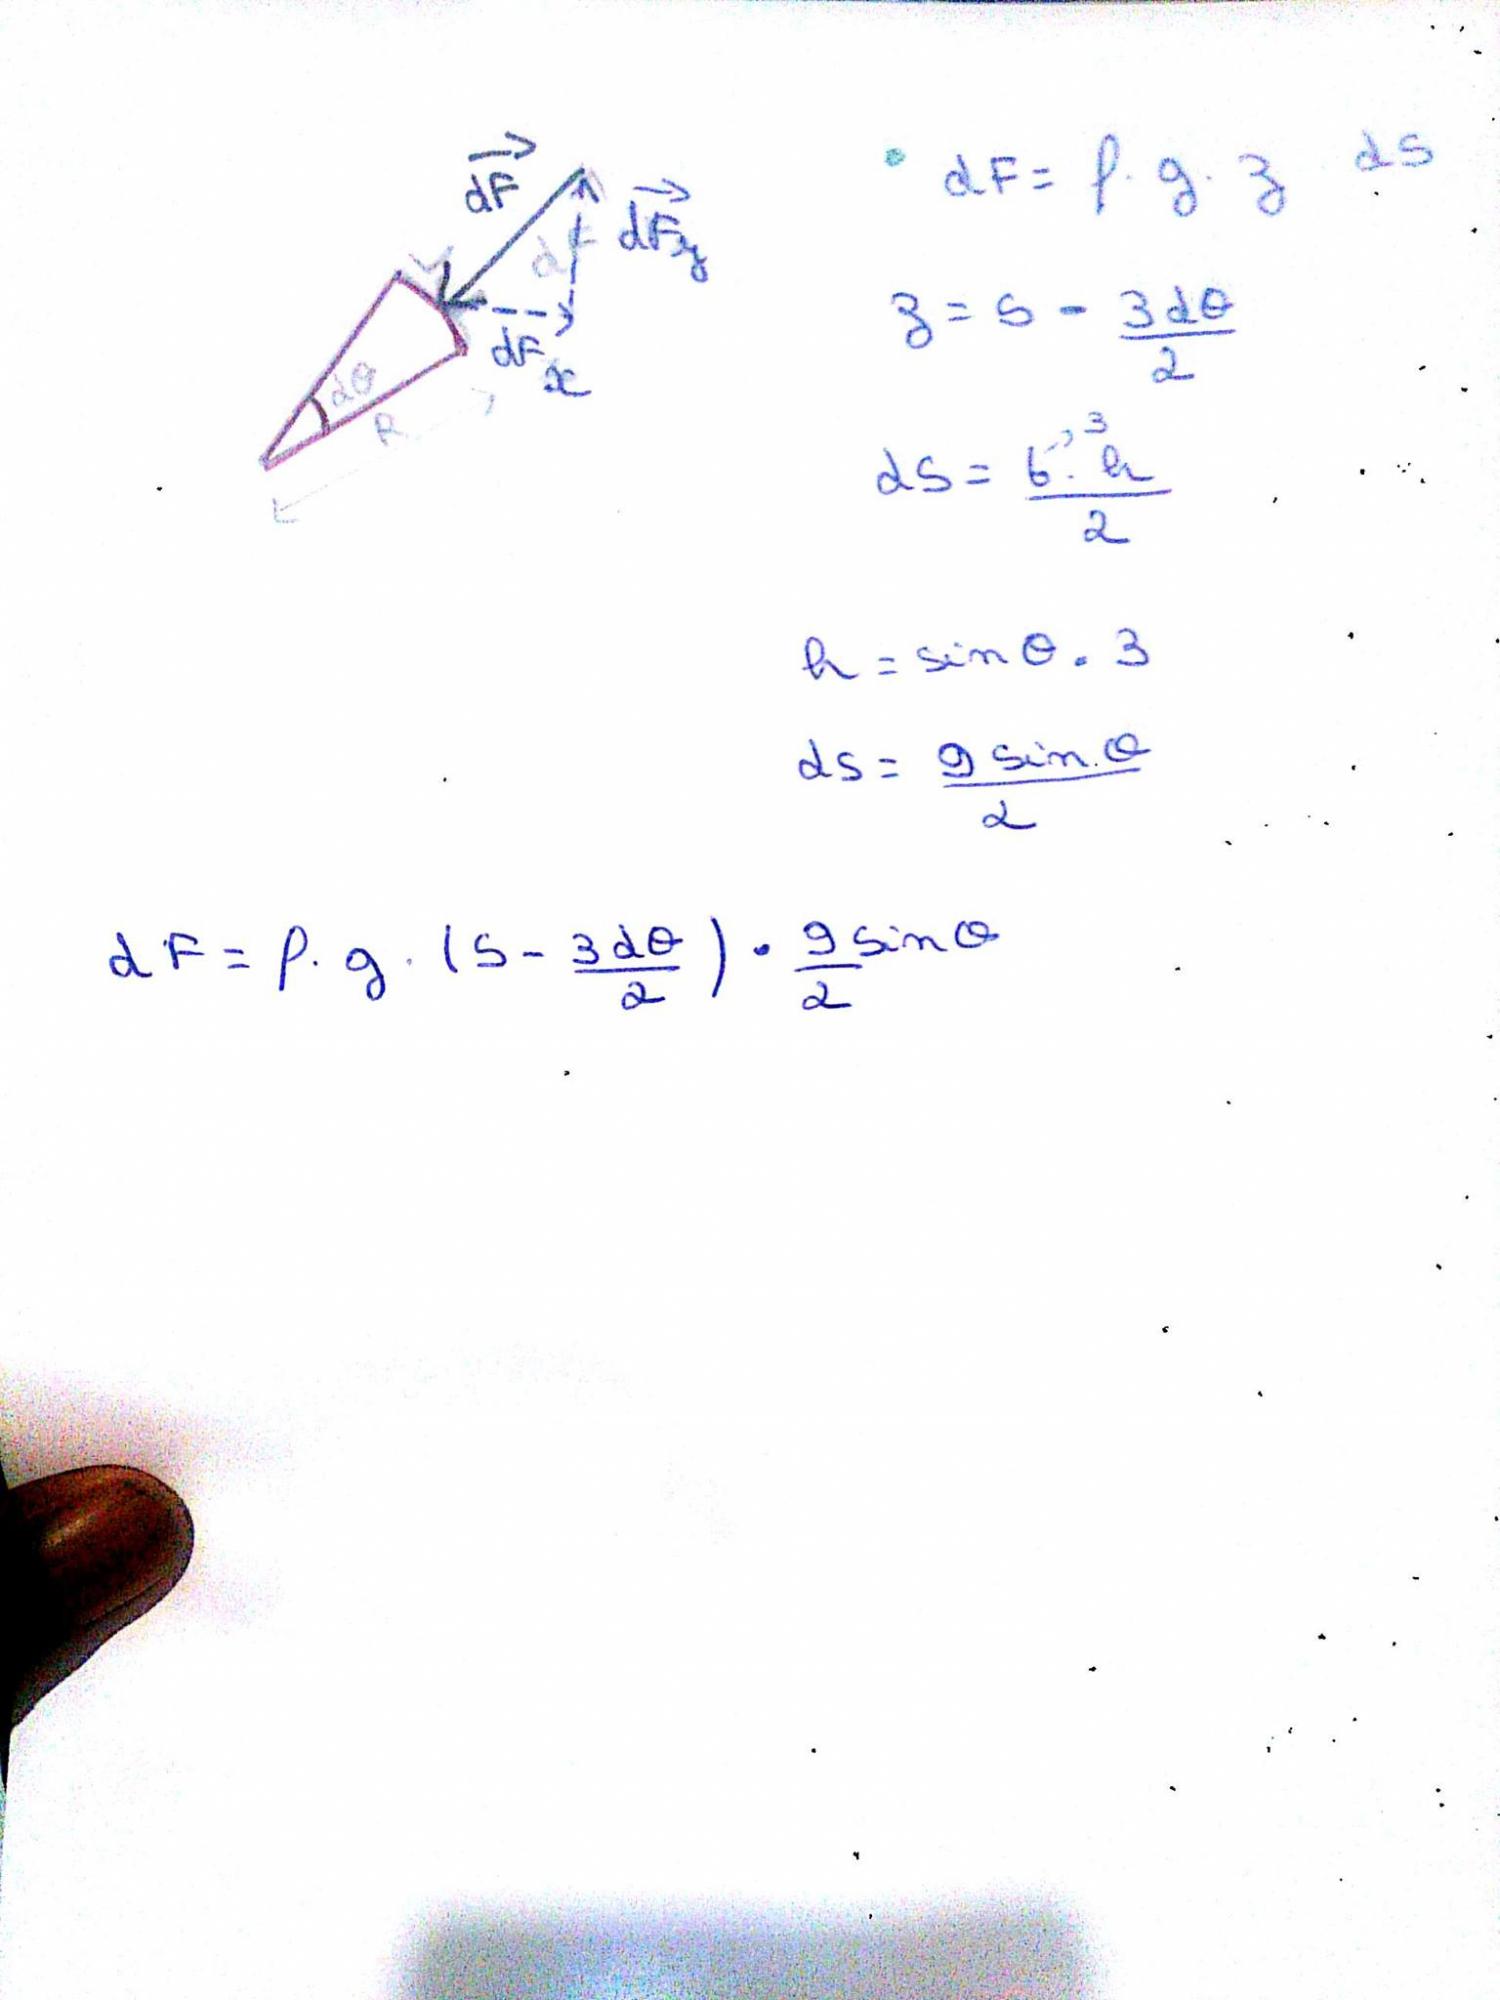 dF
dF
dFy
dFx
dθ
R
dF = ρ. g. z ds
z = 5 - 3dθ/2
ds = b. h/2
3
h = sinθ. 3
ds = 9 sin. θ/2
dF = ρ. g. (5 - 3dθ/2). 9/2 sinθ